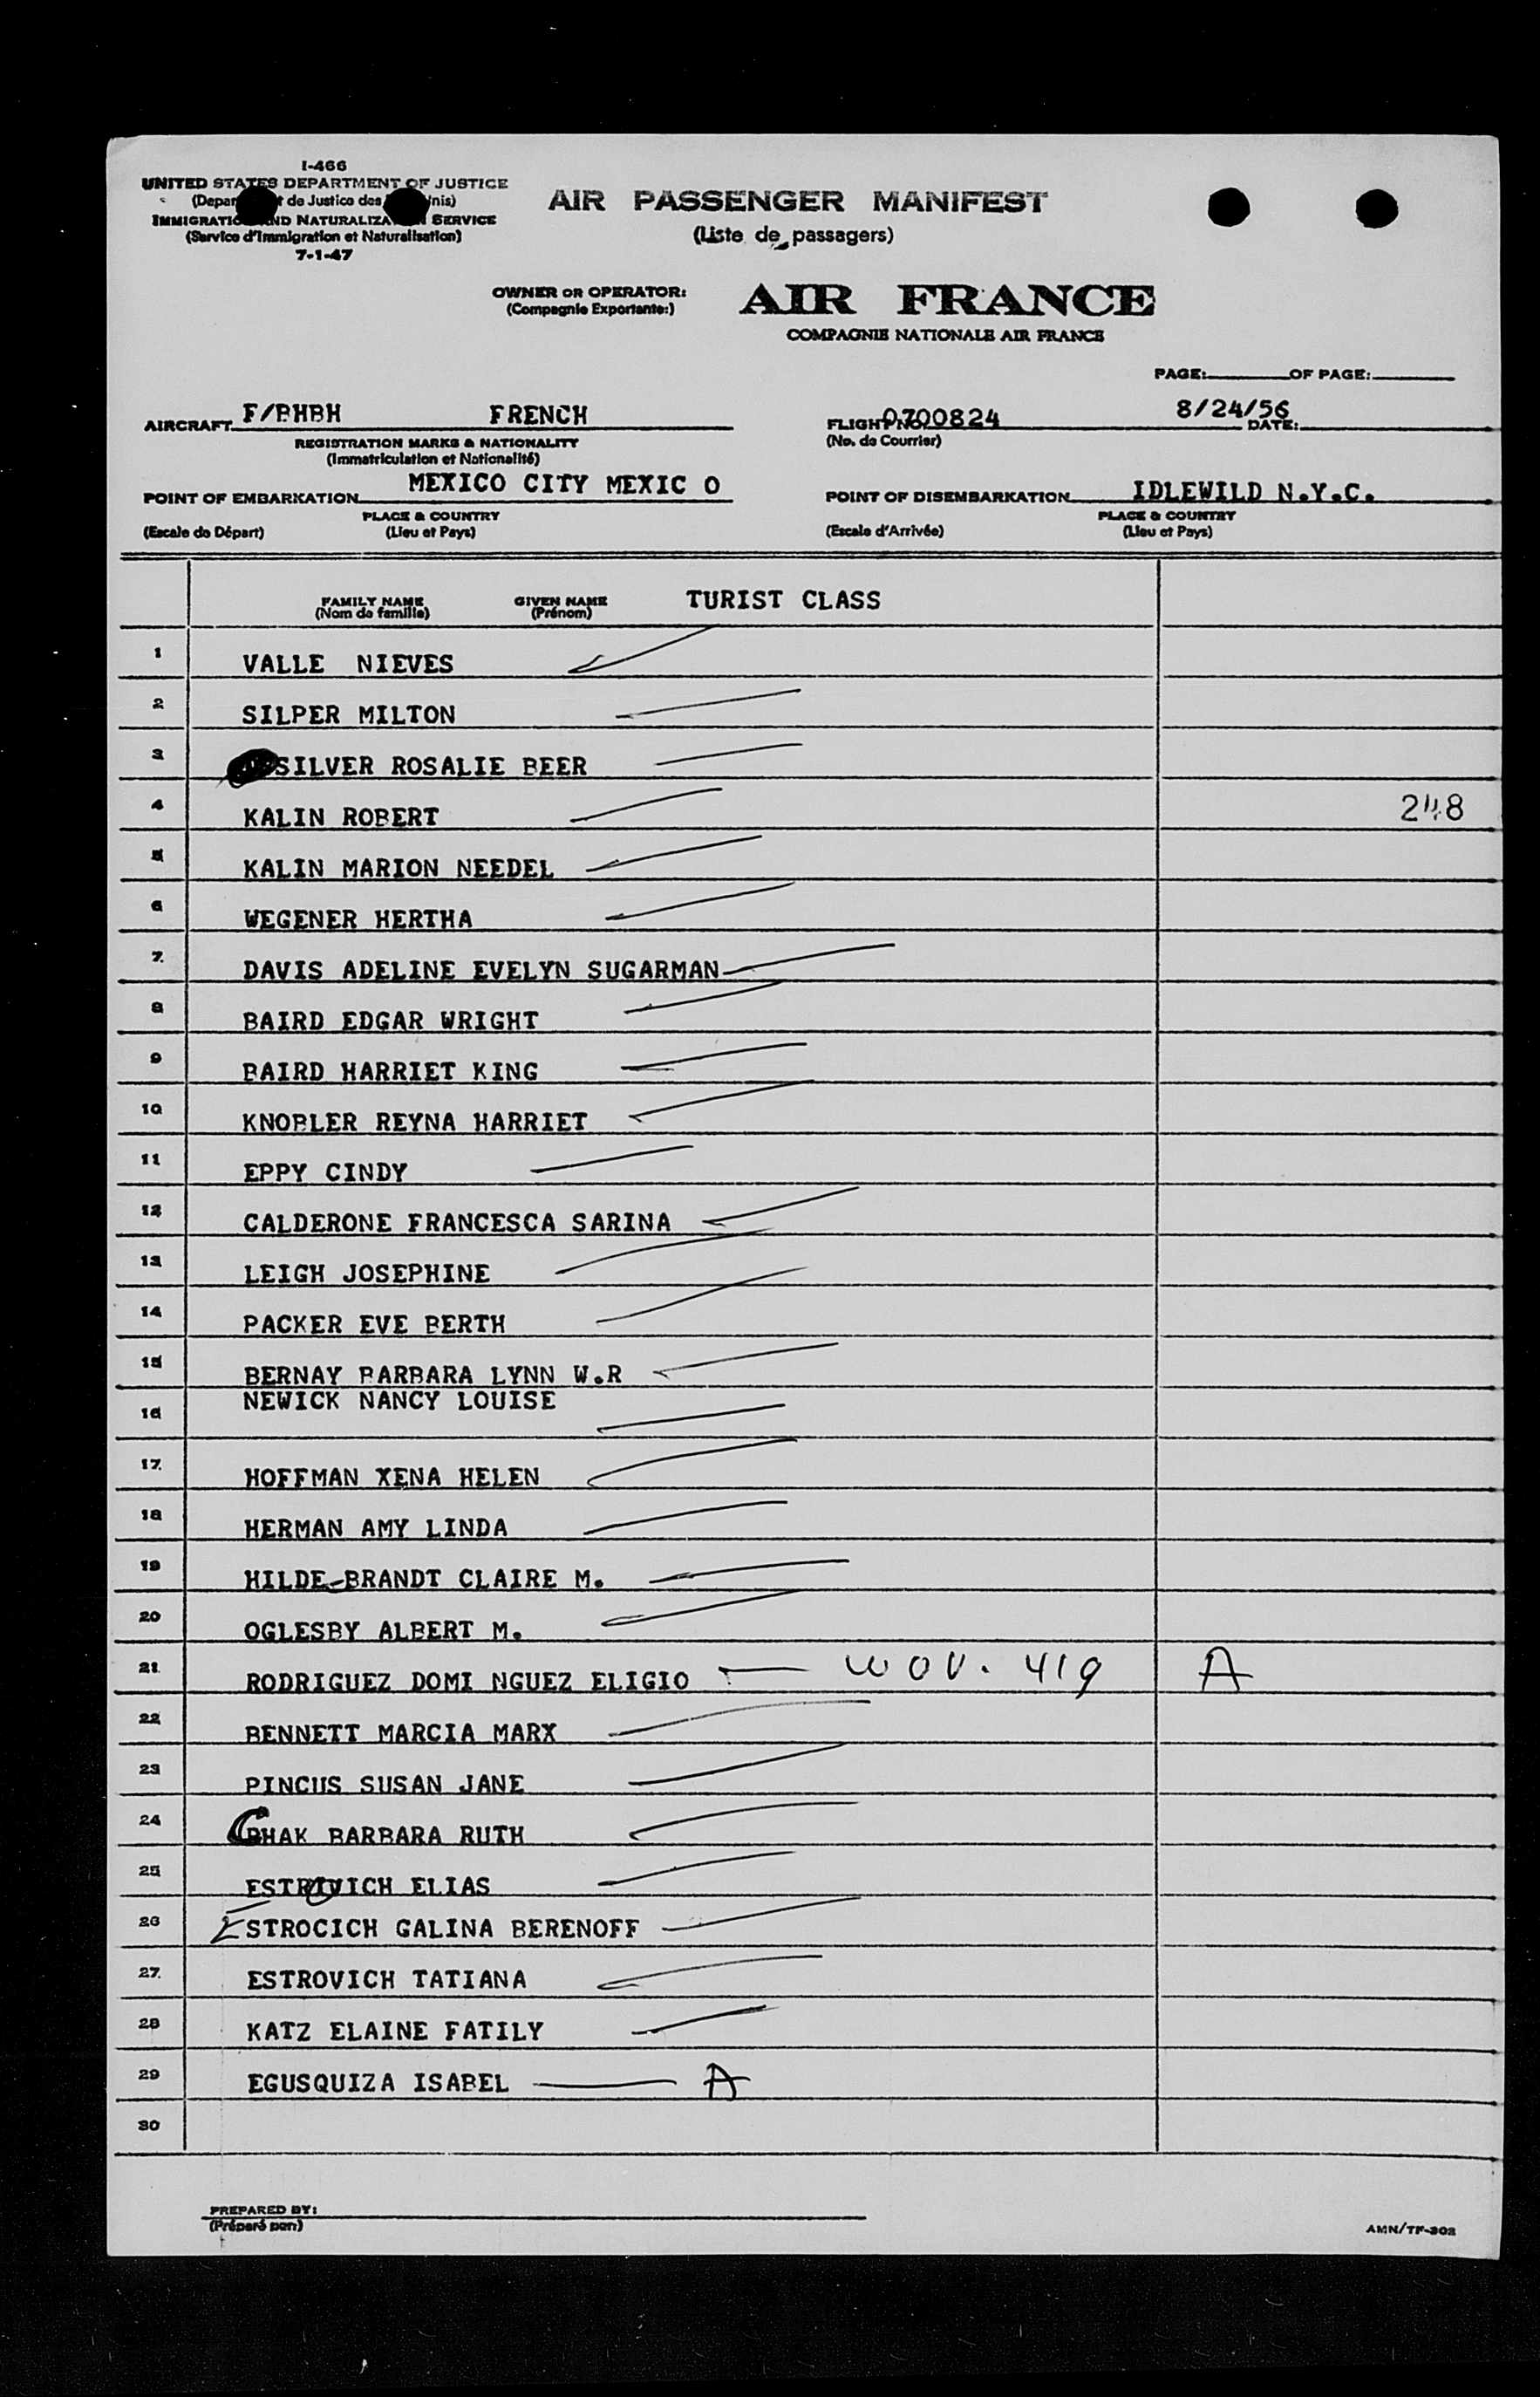 I-466
UNITED STATES DEPARTMENT OF JUSTICE
de Justice des
IMMIGRATION AND NATURALIZATION SERVICE
(Service d'Immigration et Naturalisation)
7-1-47
AIR PASSENGER MANIFEST
(Liste de passagers)
OWNER OR OPERATOR:
(Compagnie Exportante:)
AIR FRANCE
COMPAGNIE NATIONALE AIR FRANCE
PAGE: OF PAGE:
AIRCRAFT F/BHBH FRENCH
REGISTRATION MARKS & NATIONALITY
(Immatriculation et Nationalité)
FLIGHT No. 0700824 8/24/56 DATE:
(No. de Courrier)
POINT OF EMBARKATION MEXICO CITY MEXIC O
PLACE & COUNTRY
(Escale de Départ) (Lieu et Pays)
POINT OF DISEMBARKATION IDLEWILD N.Y.C.
PLACE & COUNTRY
(Escale d'Arrivée) (Lieu et Pays)
FAMILY NAME GIVEN NAME TURIST CLASS
(Nom de famille) (Prénom)
1 VALLE NIEVES
2 SILPER MILTON
3 SILVER ROSALIE BEER
4 KALIN ROBERT 248
5 KALIN MARION NEEDEL
6 WEGENER HERTHA
7 DAVIS ADELINE EVELYN SUGARMAN
8 BAIRD EDGAR WRIGHT
9 BAIRD HARRIET KING
10 KNOBLER REYNA HARRIET
11 EPPY CINDY
12 CALDERONE FRANCESCA SARINA
13 LEIGH JOSEPHINE
14 PACKER EVE BERTH
15 BERNAY BARBARA LYNN W.R
16 NEWICK NANCY LOUISE
17 HOFFMAN XENA HELEN
18 HERMAN AMY LINDA
19 HILDE-BRANDT CLAIRE M.
20 OGLESBY ALBERT M.
21 RODRIGUEZ DOMI NGUEZ ELIGIO WOV. 419 A
22 BENNETT MARCIA MARX
23 PINCUS SUSAN JANE
24 CHAK BARBARA RUTH
25 ESTROVICH ELIAS
26 ESTROCICH GALINA BERENOFF
27 ESTROVICH TATIANA
28 KATZ ELAINE FATILY
29 EGUSQUIZA ISABEL A
30
PREPARED BY:
(Préparé par:)
AMN/TF-302